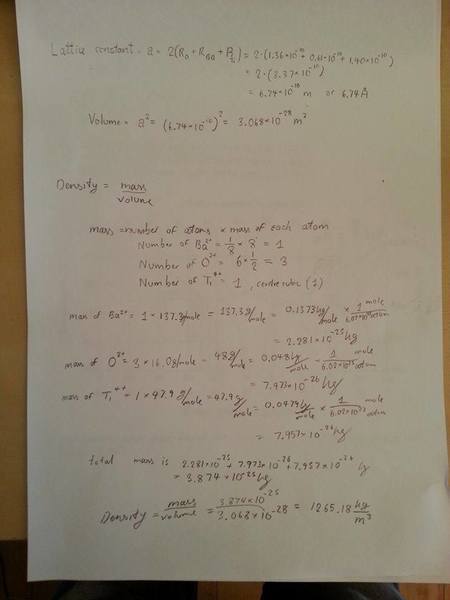 Lattice constant = a = 2(R₀ + R_Ba + R_Ti) = 2·(1.36×10⁻¹⁰ + 0.61×10⁻¹⁰ + 1.40×10⁻¹⁰)
= 2·(3.37×10⁻¹⁰)
= 6.74×10⁻¹⁰ m or 6.74Å
Volume = a³ = (6.74×10⁻¹⁰)³ = 3.068×10⁻²⁸ m³
Density = mass/volume
mass = number of atoms × mass of each atom
Number of Ba²⁺ = 1/8 × 8 = 1
Number of O²⁻ = 6×1/2 = 3
Number of Ti⁴⁺ = 1, (1)
mass of Ba²⁺ = 1×137.3g/mole = 137.3g/mole = 0.1373kg/mole × 1 mole/6.02×10²³ atom
= 2.281×10⁻²⁵kg
mass of O²⁻ = 3×16.0g/mole = 48g/mole = 0.048kg/mole × 1 mole/6.02×10²³ atom
= 7.973×10⁻²⁶kg
mass of Ti⁴⁺ = 1×47.9g/mole = 47.9g/mole = 0.0479kg/mole × 1 mole/6.02×10²³ atom
= 7.957×10⁻²⁶kg
total mass is 2.281×10⁻²⁵ + 7.973×10⁻²⁶ + 7.957×10⁻²⁶ kg
= 3.874×10⁻²⁵kg
Density = mass/volume = 3.874×10⁻²⁵/3.068×10⁻²⁸ = 1265.18 kg/m³